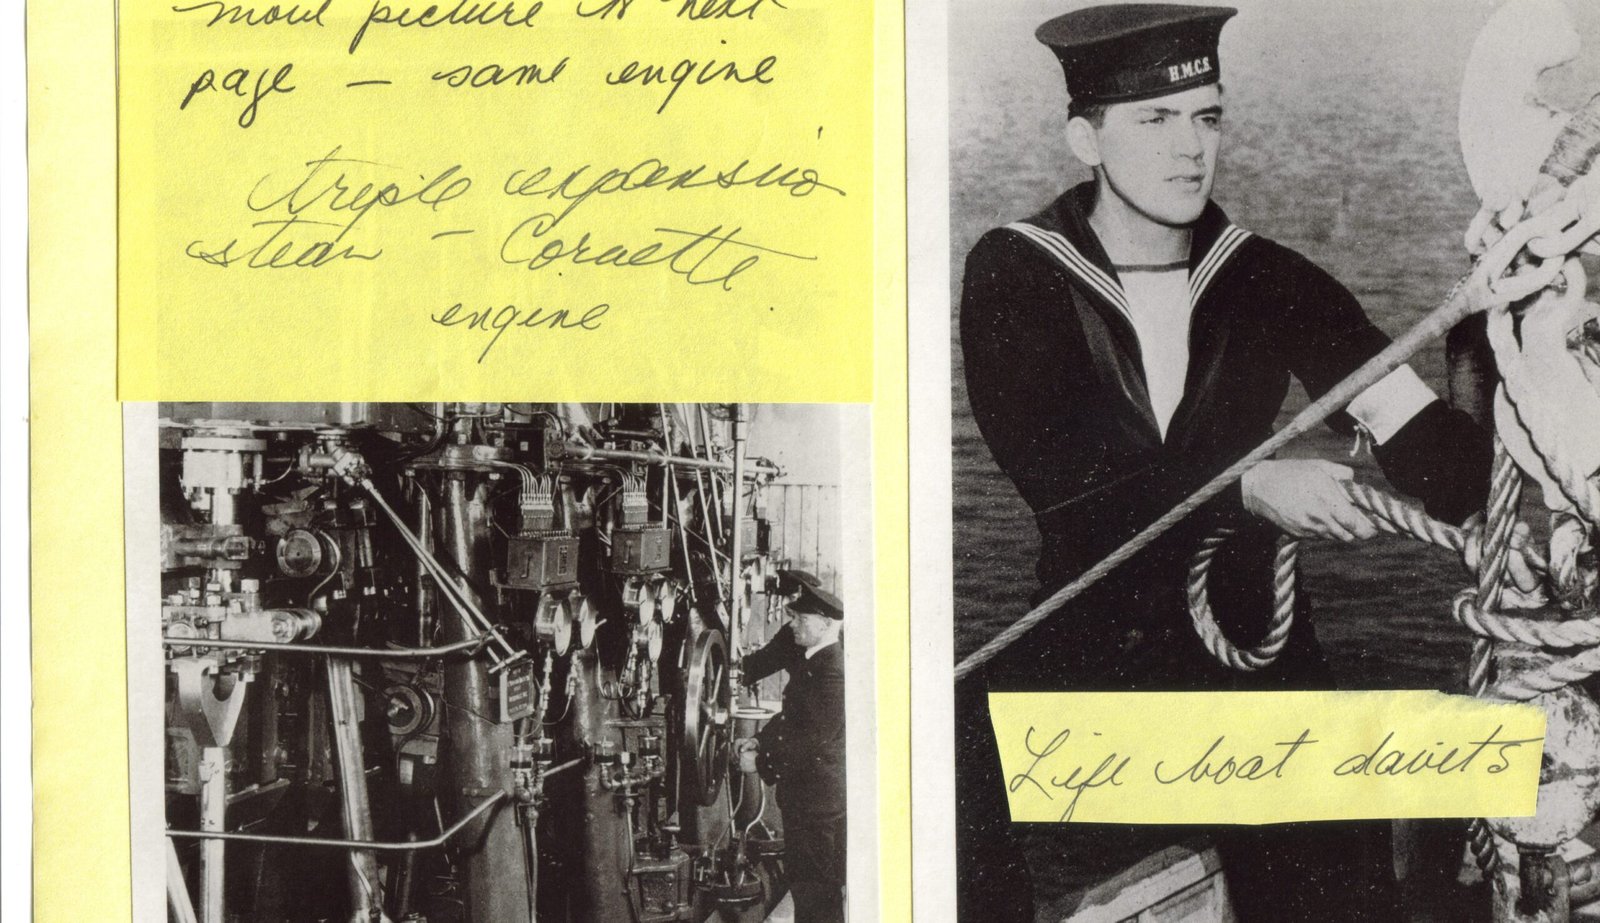 picture is next
page — same engine
triple expansion
steam — Corvette
engine
H.M.C.S.
Life boat davits